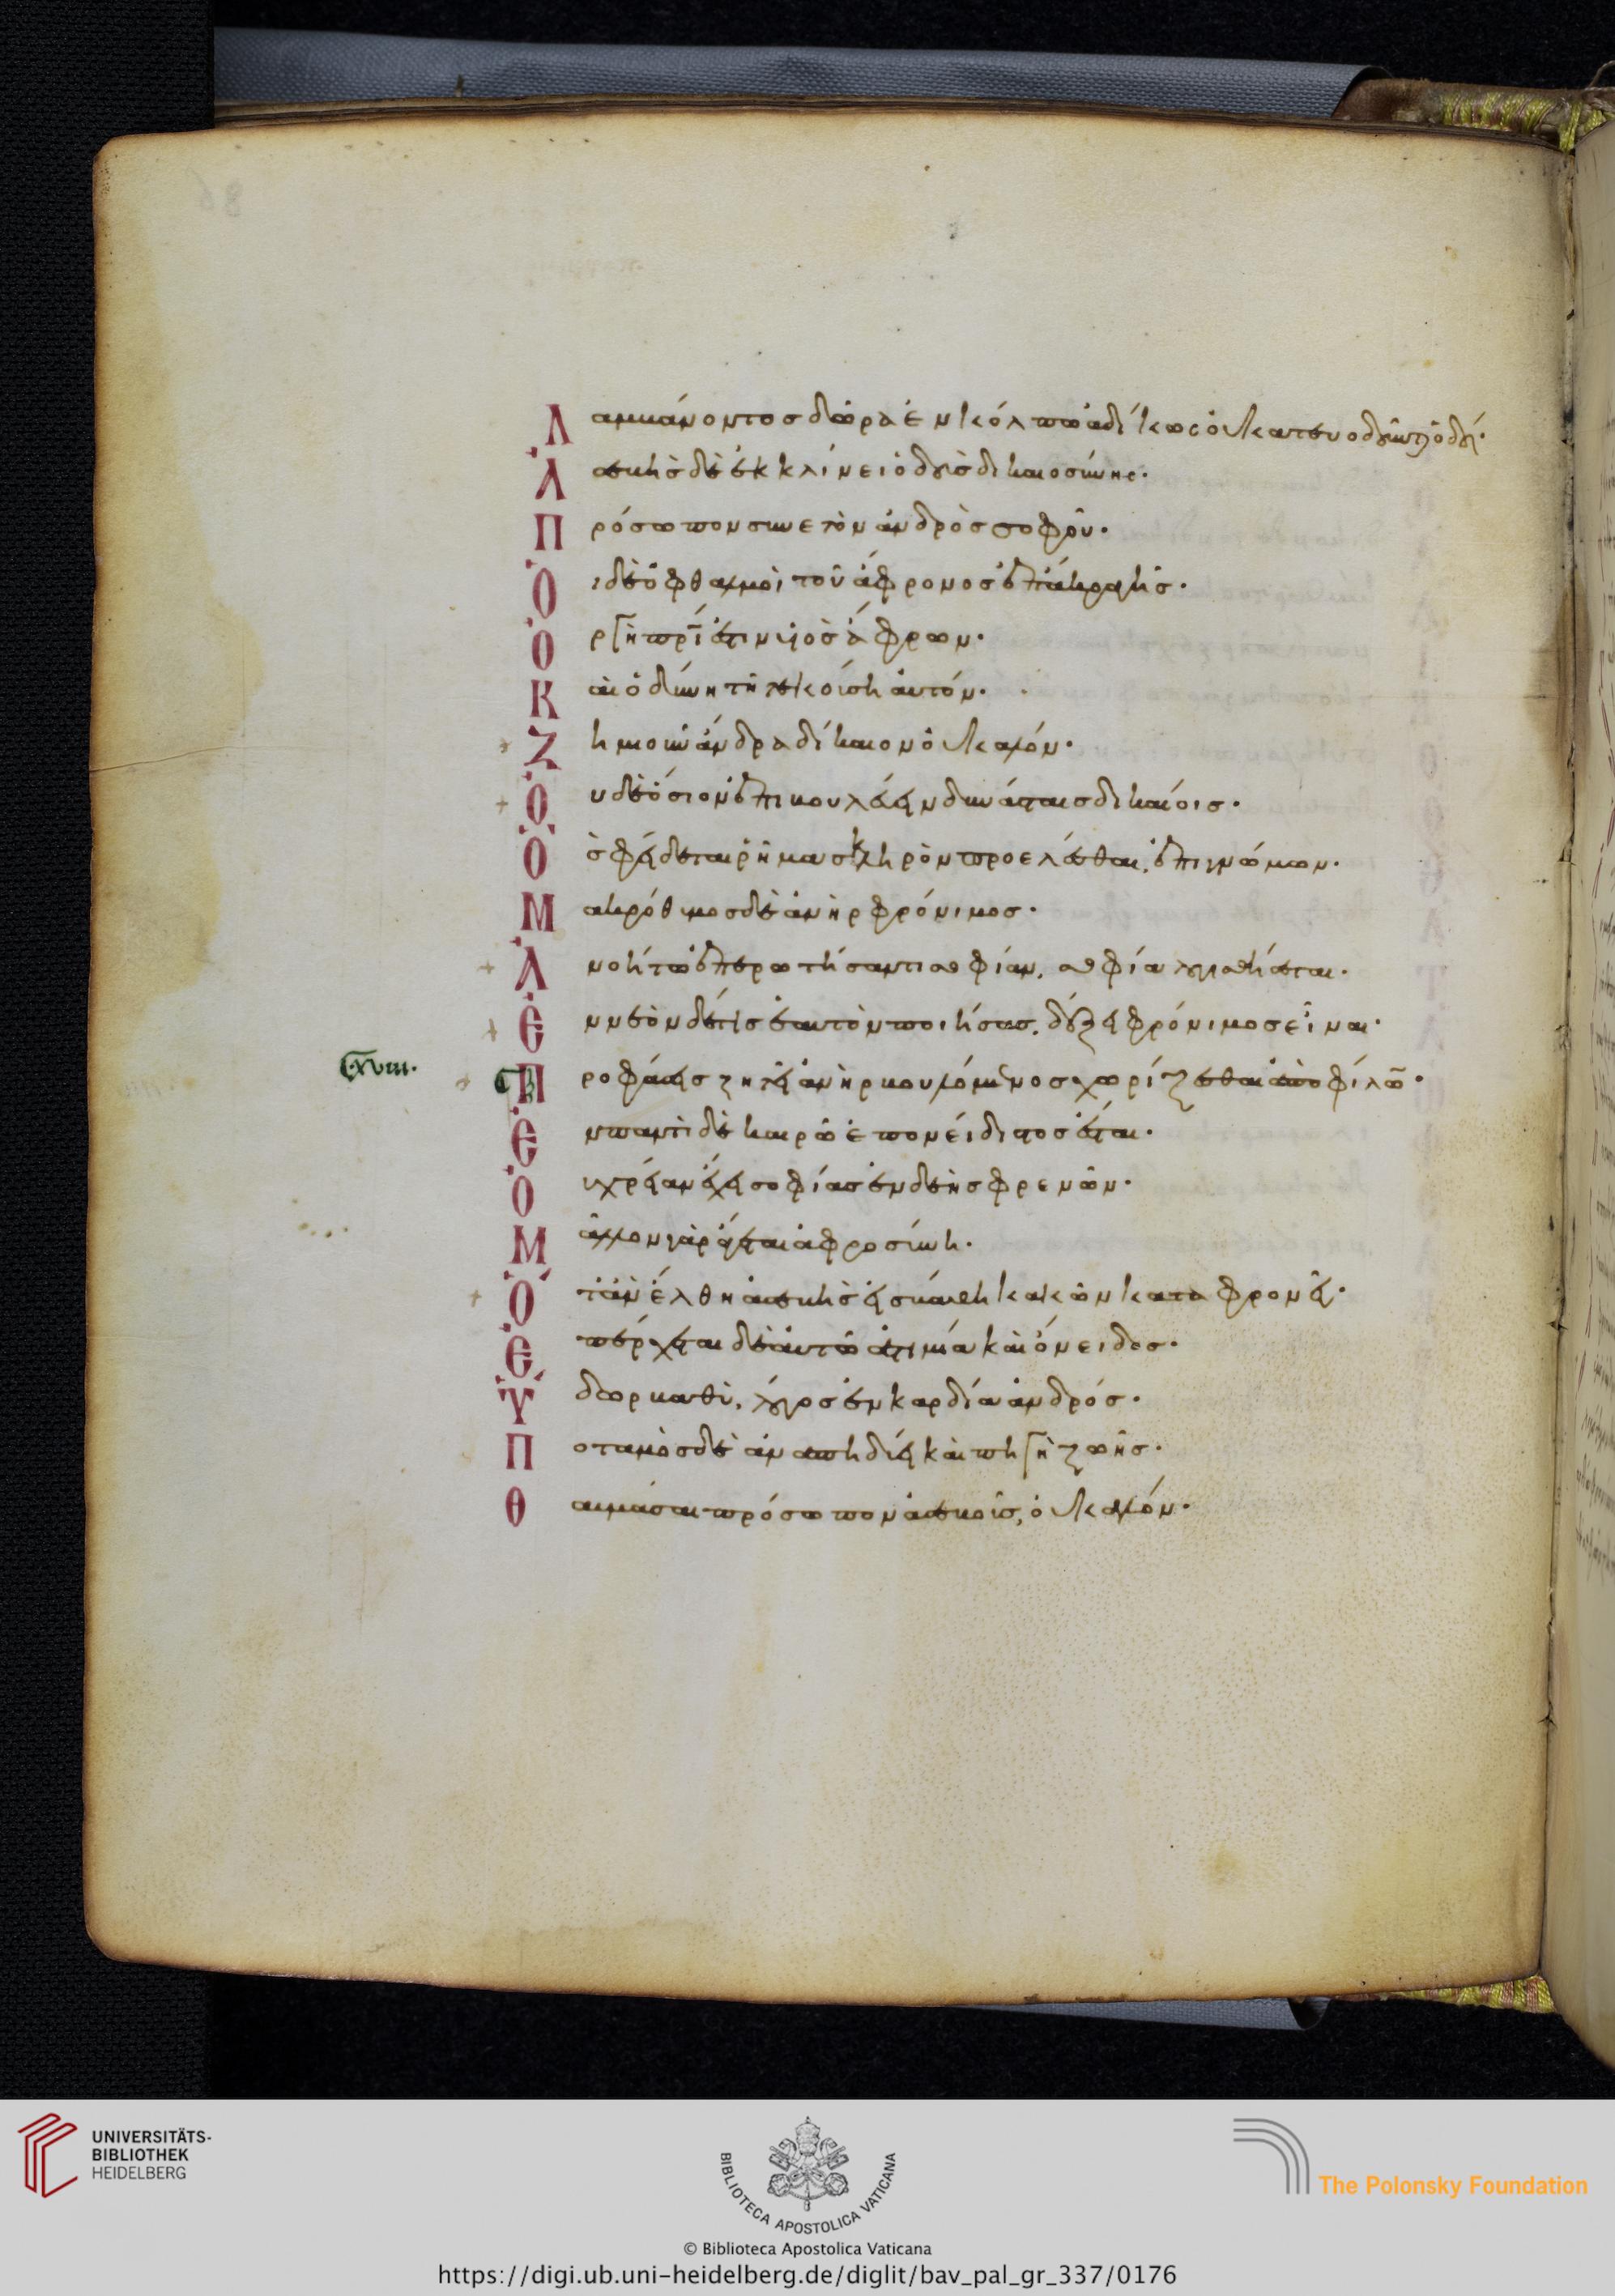 Λαμβάνοντος δῶρα ἐν κόλπω ἀδίκως οὐ κατευοδοῦνται ὁδοί·
Ἀσεβὴς δὲ ἐκκλίνει ὁδοὺς δικαιοσύνης·
Πρόσωπον συνετὸν ἀνδρὸς σοφοῦ·
Οἱ δὲ ὀφθαλμοὶ τοῦ ἄφρονος ἐπ' ἄκρα γῆς·
Ὀργὴ πρὶ ἐστιν υἱὸς ἄφρων·
Καὶ ὀδύνη τῆ τεκούση αὐτόν·
Ζημιοῦν ἄνδρα δίκαιον οὐ καλόν·
Οὐδὲ ὅσιον ἐπιβουλεύειν δυνάσταις δικαίοις·
Ὃς φείδεται ῥῆμα σκληρὸν προελέσθαι, ἐπιγνώμων·
Μακρόθυμος δὲ ἀνὴρ φρόνιμος·
Ἀνοήτω ἐπερωτήσαντι σοφίαν, σοφία λογισθήσεται·
Ἐννεὸν δέ τις ἑαυτὸν ποιήσας, δόξει φρόνιμος εἶναι·
C.XVIII.
Προφάσεις ζητεῖ ἀνὴρ βουλόμενος χωρίζεσθαι ἀπὸ φίλων·
Ἐν παντὶ δὲ καιρῶ ἐπονείδιστος ἔσται·
Οὐ χρείαν ἔχει σοφίας ἐνδεὴς φρενῶν·
Μᾶλλον γὰρ ἄγεται ἀφροσύνη·
Ὅταν ἔλθη ἀσεβὴς εἰς βάθη κακῶν καταφρονεῖ·
Ἐπέρχεται δὲ αὐτῶ ἀτιμία καὶ ὄνειδος·
Ὕδωρ βαθὺ, λόγος ἐν καρδία ἀνδρός·
Ποταμὸς δὲ ἀναπηδύει καὶ πηγὴ ζωῆς·
Θαυμάσαι πρόσωπον ἀσεβοῦς, οὐ καλόν·
UNIVERSITÄTS-
BIBLIOTHEK
HEIDELBERG
BIBLIOTECA APOSTOLICA VATICANA
The Polonsky Foundation
© Biblioteca Apostolica Vaticana
https://digi.ub.uni-heidelberg.de/diglit/bav_pal_gr_337/0176